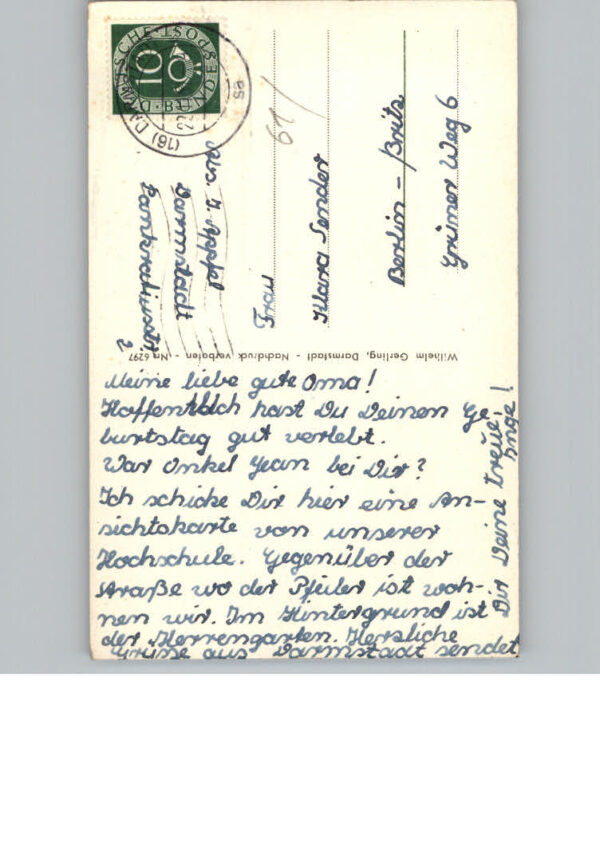 Meine liebe gute Oma!
Hoffentlich hast Du Deinen Ge-
burtstag gut verlebt.
War Onkel Jean bei Dir?
Ich schicke Dir hier eine An-
sichtskarte von unserer
Hochschule. Gegenüber der
Straße wo der Pfeiler ist woh-
nen wir. Im Hintergrund ist
der Herrengarten. Herzliche
Grüsse aus Darmstadt sendet
Dir Deine treue
Inge!
Wilhelm Gerling, Darmstadt - Nachdruck verboten - Nr. 6297
DEUTSCHE BUNDESPOST
10
(16) DARMSTADT
Abs. I. Appel
Darmstadt
Pankratiusstr.
2
61/
Frau
Klara Sender
Berlin - Britz
Grüner Weg 6